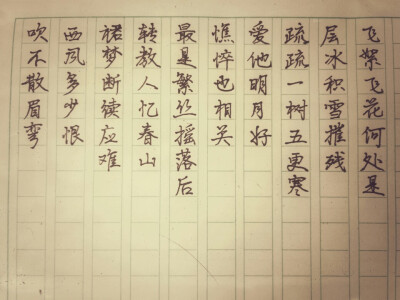 飞絮飞花何处是
层冰积雪摧残
疏疏一树五更寒
爱他明月好
憔悴也相关
最是繁丝摇落后
转教人忆春山
裙梦断续应难
西风多少恨
吹不散眉弯